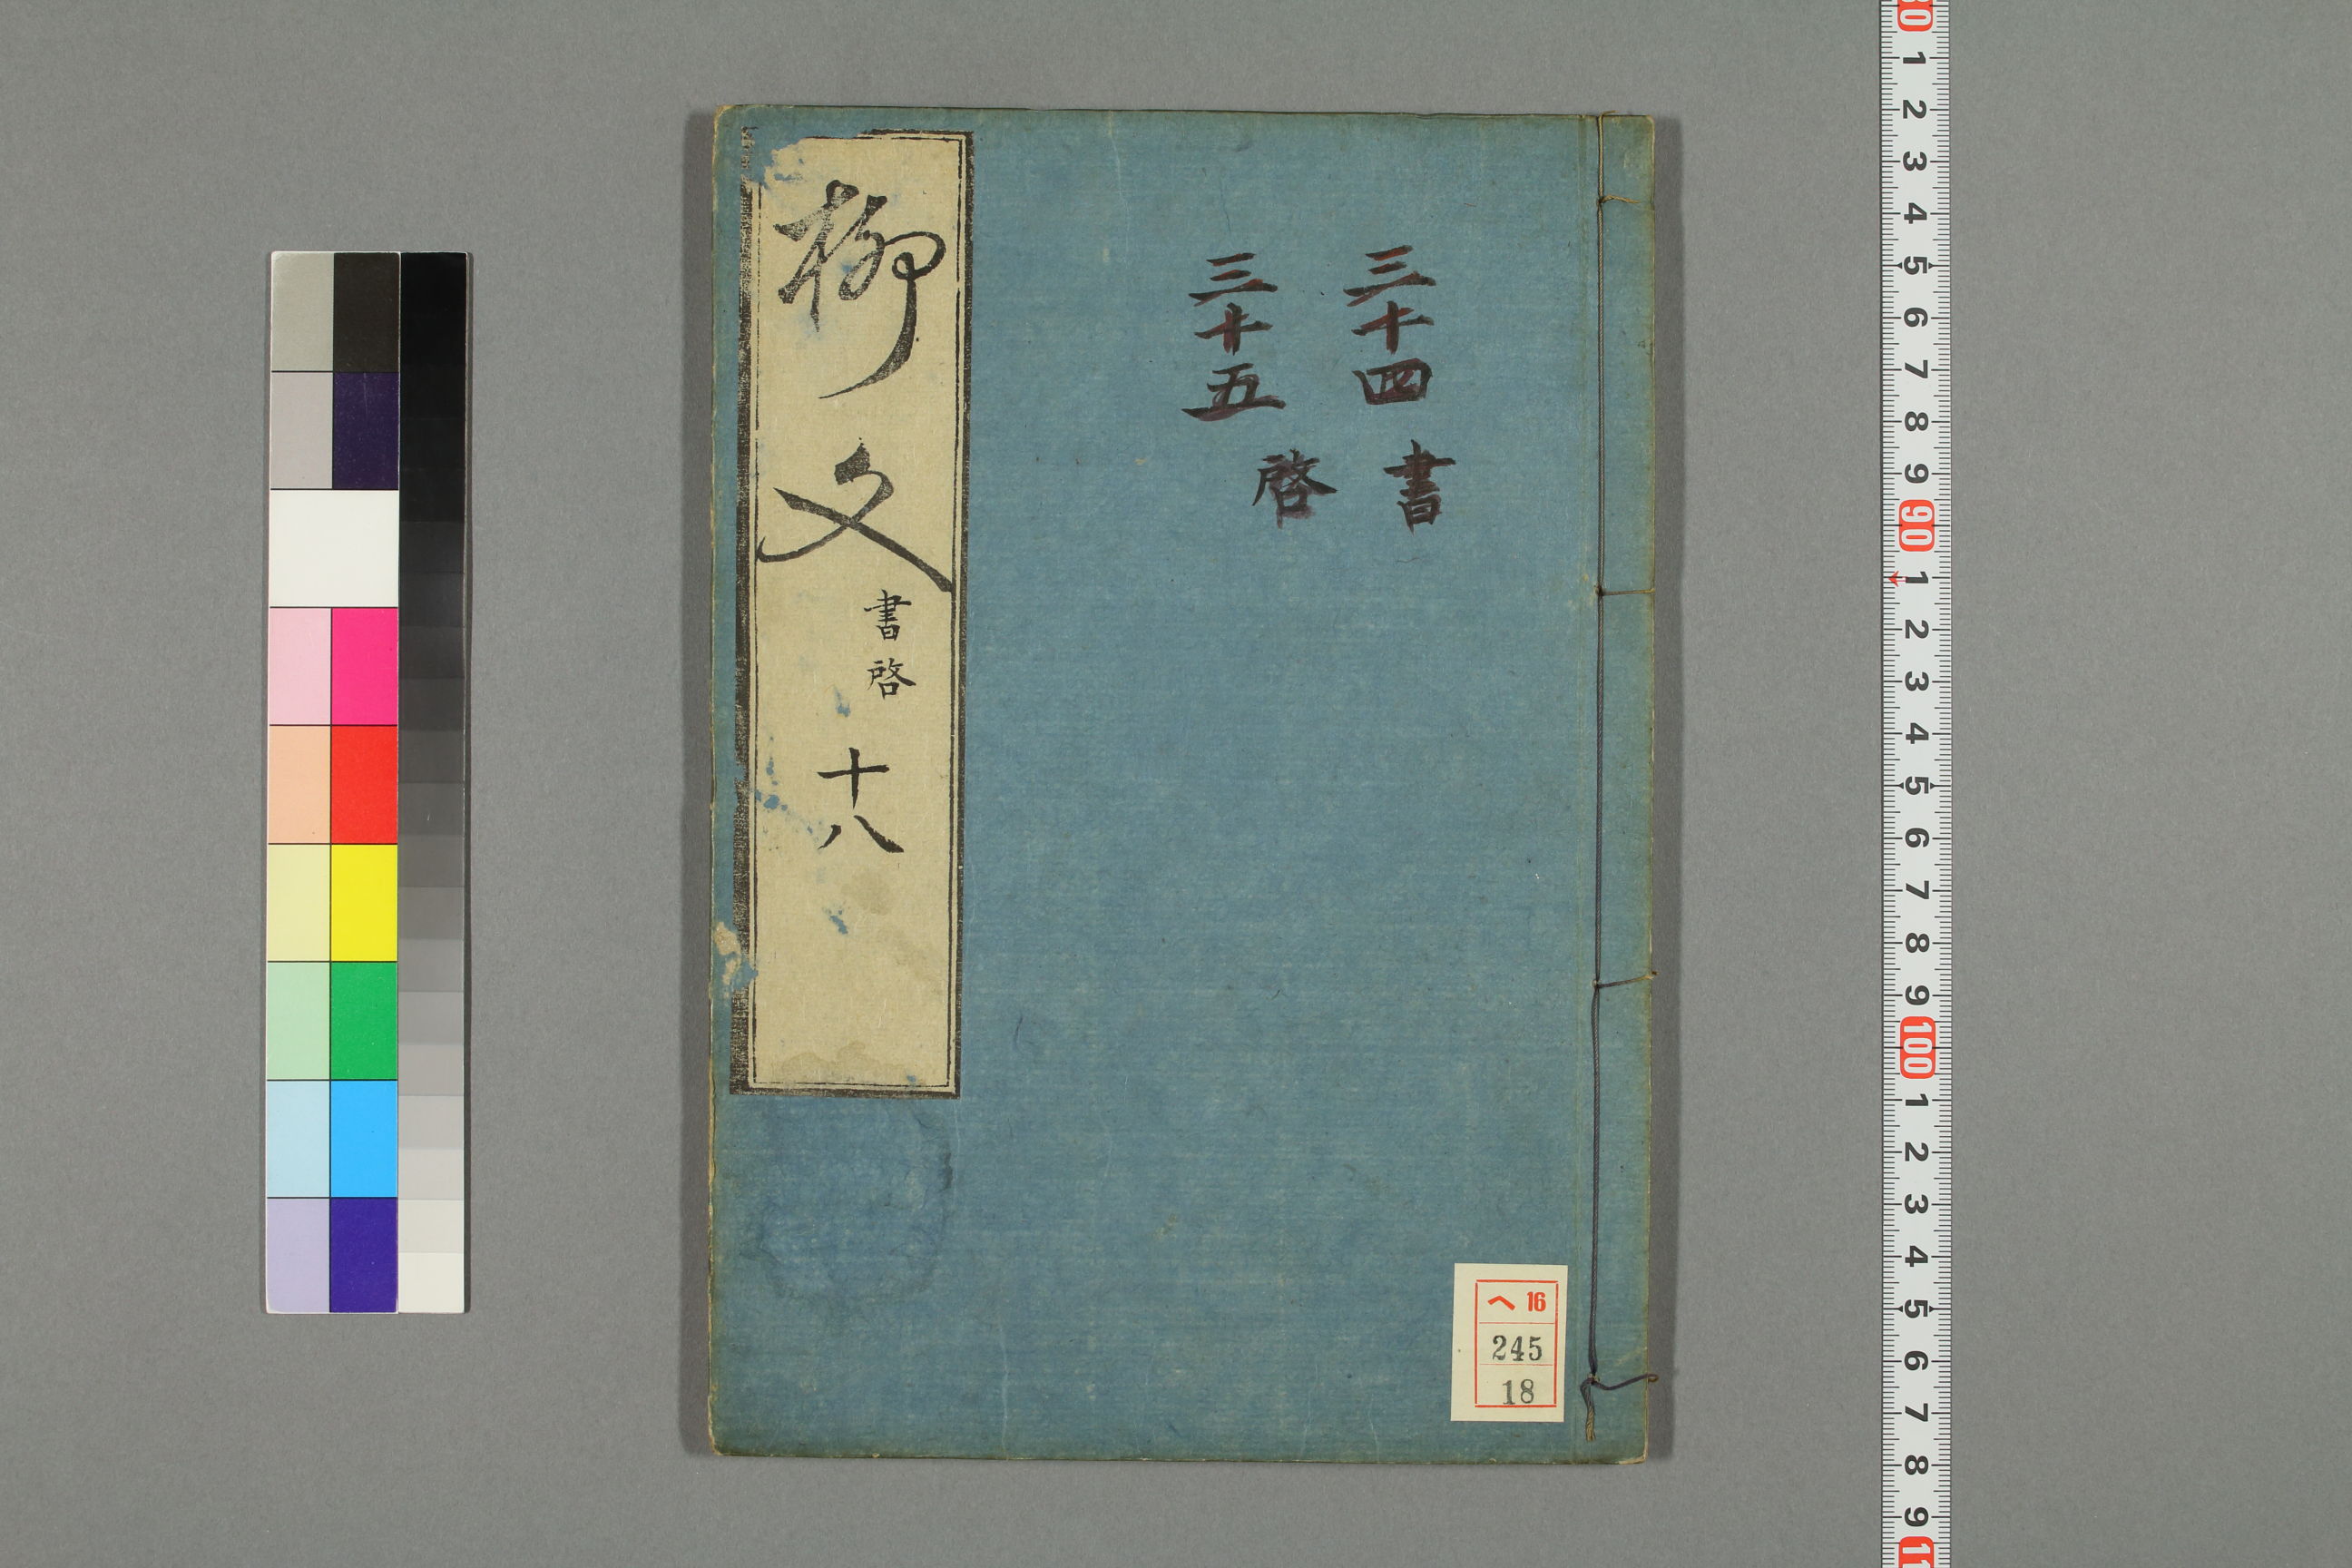 三十四
書
三十五
啓
柳文
書啓
十八
ヘ 16
245
18
0 1 2 3 4 5 6 7 8 9 90 1 2 3 4 5 6 7 8 9 100 1 2 3 4 5 6 7 8 9